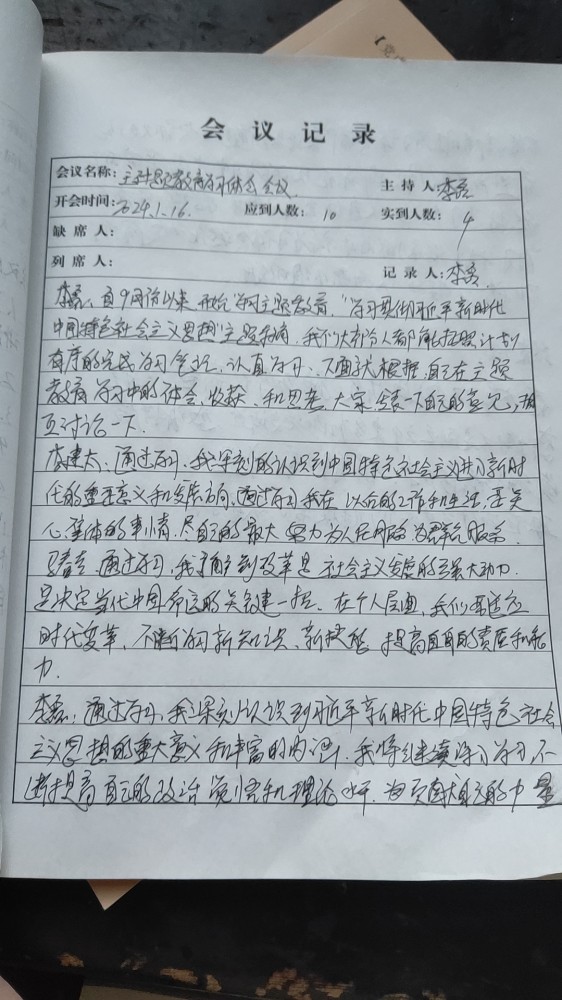 会议记录
会议名称：主题教育学习体会会议 主持人：李磊
开会时间：2024.1.16. 应到人数：10 实到人数：4
缺席人：
列席人： 记录人：李磊
李磊：自9月份以来 开始学习主题教育，"学习贯彻习近平新时代
中国特色社会主义思想"主题教育，我们大部分人都能按照计划
有序的完成学习笔记，认真学习，下面就根据自己在主题
教育学习中的体会、收获、和思考，大家发表一下自己的意见，相
互讨论一下.
李建太：通过学习，我深刻的认识到中国特色社会主义进入新时
代的重要意义和发展方向，通过学习我在以后的工作和生活，要关
心集体的事情，尽自己的最大努力为人民服务 为群众服务.
通过学习，我了解到改革是社会主义发展的强大动力.
是决定当代中国命运的关键一招、在个人层面，我们要适应
时代变革，不断学习新知识、新技能 提高自身的素质和能
力.
李磊：通过学习，我深刻认识到习近平新时代中国特色社会
主义思想的重大意义和丰富的内涵，我将继续深入学习，不
断提高自己的政治觉悟和理论水平，为贡献自己的力量